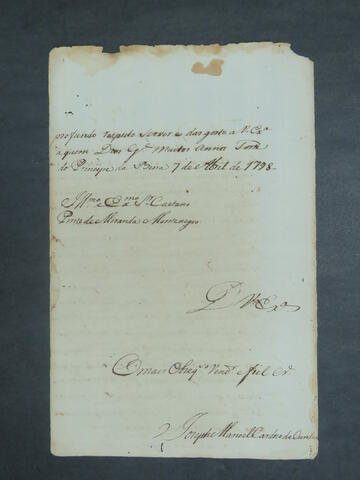 profundo respeito servir e dar gosto a V. Exª
a quem Deos Gᵉ muitos annos Forte
do Principe da Beira 7 de Abril de 1798
Illmo e Exmo Sr Caetano
Pinto de Miranda Montenegro
De V. Exª
O mais Obrigº Venᵈ e fiel Cr.
Joseph Manoel Cardoso da Cunha